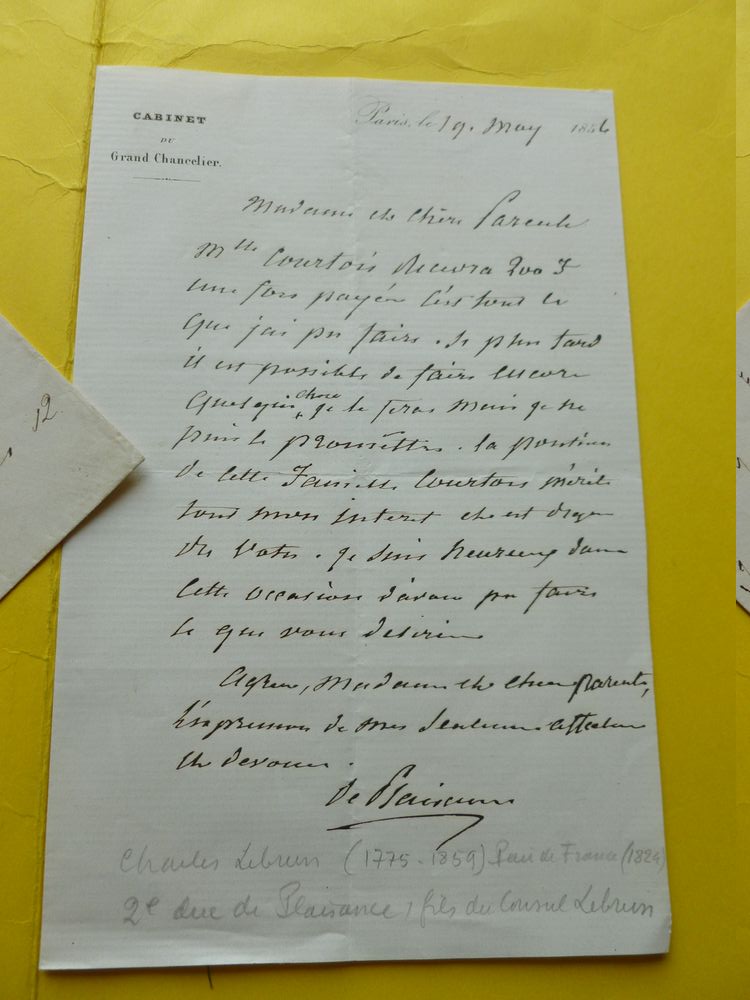 CABINET
DU
Grand Chancelier.
Paris, le 19. May 1856
Madame et chère Parente
Mlle Courtois recevra 200 F
une fois payée c'est tout ce
que j'ai pu faire. Si plus tard
il est possible de faire encore
quelque chose je le ferai mais je ne
puis le promettre. la position
de cette famille Courtois mérite
tout mon interet et est digne
du votre. je suis heureux dans
cette occasion d'avoir pu faire
ce que vous desiriez
Agréez, Madame et chere parente,
l'expression de mes sentimens affectueux
et devoués.
de Plaisance
Charles Lebrun (1775-1859) Pair de France (1824)
2e duc de Plaisance, fils du Consul Lebrun
12